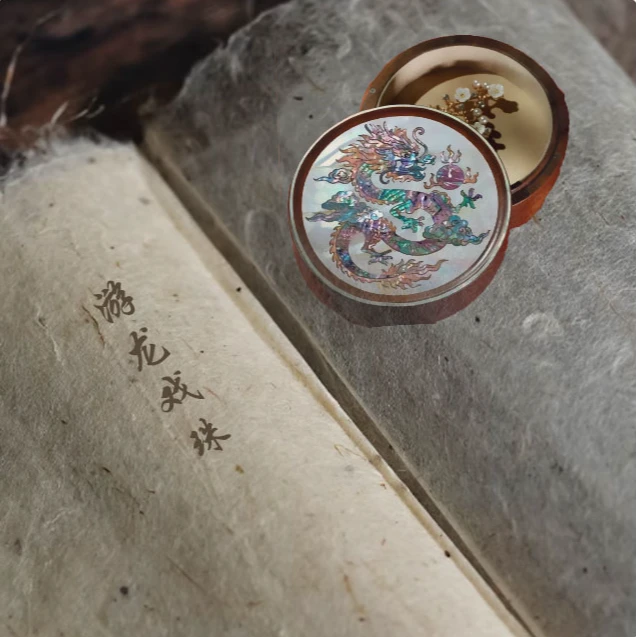 游龙戏珠